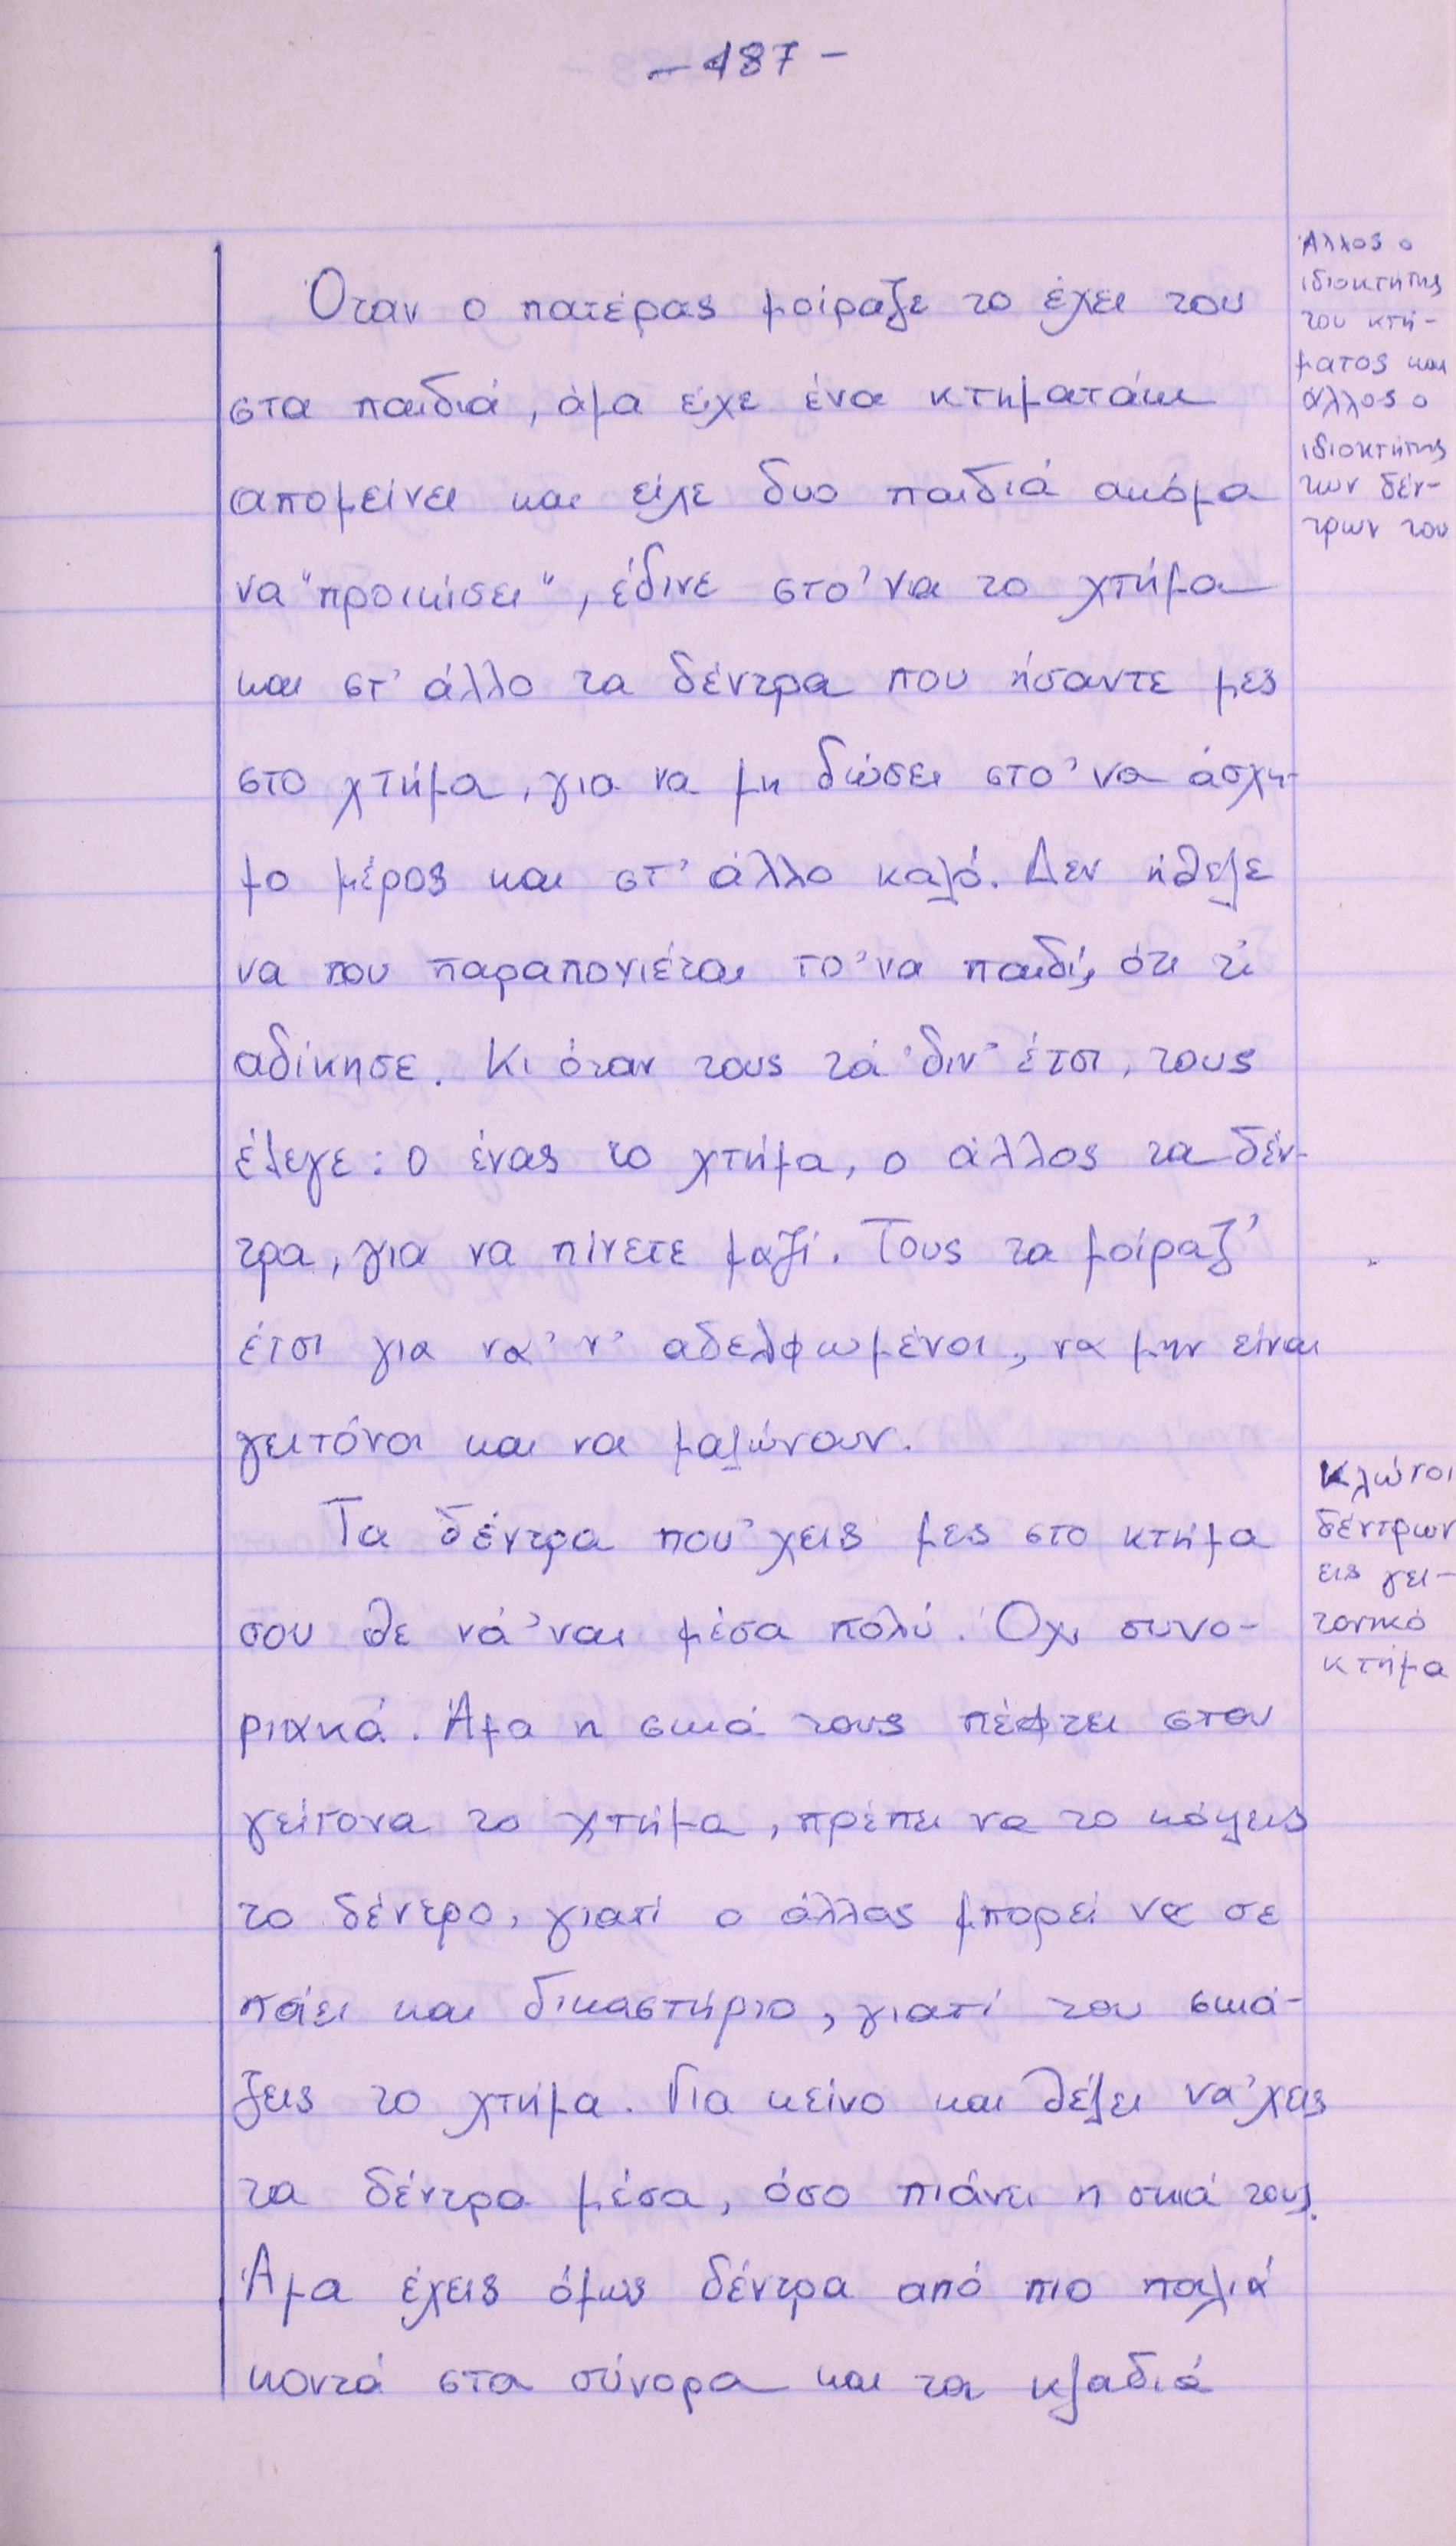 - 487 -
Όταν ο πατέρας μοίραζε το έχει του
στα παιδιά, άμα είχε ένα κτηματάκι
απομείνει και είχε δυο παιδιά ακόμα
να "προικίσει", έδινε στο 'να το χτήμα
και στ' άλλο τα δέντρα που ήσαντε μες
στο χτήμα, για να μη δώσει στο 'να άσχη-
μο μέρος και στ' άλλο καλό. Δεν ήθελε
να του παραπονιέται το 'να παιδί, ότι τ'
αδίκησε. Κι όταν τους τά 'διν' έτσι, τους
έλεγε: ο ένας το χτήμα, ο άλλος τα δέν-
τρα, για να πίνετε μαζί. Τους τα μοίραζ'
έτσι για να 'ν' αδελφωμένοι, να μην είναι
γειτόνοι και να μαλώνουν.
Τα δέντρα που 'χεις μες στο κτήμα
σου θε νά 'ναι μέσα πολύ. Όχι συνο-
ριακά. Άμα η σκιά τους πέφτει στου
γείτονα το χτήμα, πρέπει να το κόψεις
το δέντρο, γιατί ο άλλος μπορεί να σε
πάει και δικαστήριο, γιατί του σκιά-
ζεις το χτήμα. Για κείνο και θέλει να 'χεις
τα δέντρα μέσα, όσο πιάνει η σκιά τους.
Άμα έχεις όμως δέντρα από πιο παλιά
κοντά στα σύνορα και τα κλαδιά
Άλλος ο
ιδιοκτήτης
του κτή-
ματος και
άλλος ο
ιδιοκτήτης
των δέν-
τρων του
Κλώνοι
δέντρων
εις γει-
τονικό
κτήμα